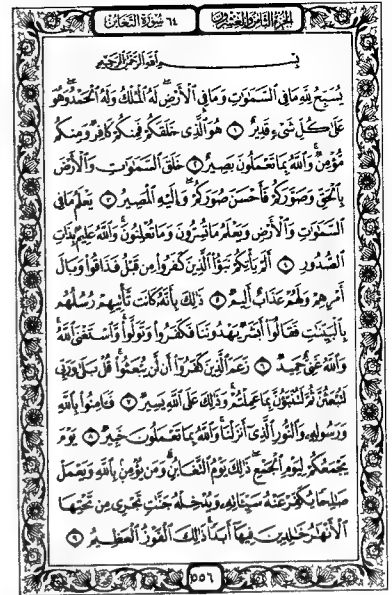 الجزء الثامن والعشرون
٦٤ سورة التغابن
بسم الله الرحمن الرحيم
يُسَبِّحُ لِلَّهِ مَا فِي السَّمَٰوَٰتِ وَمَا فِي الْأَرْضِ ۖ لَهُ الْمُلْكُ وَلَهُ الْحَمْدُ ۖ وَهُوَ
عَلَىٰ كُلِّ شَيْءٍ قَدِيرٌ ١ هُوَ الَّذِي خَلَقَكُمْ فَمِنكُمْ كَافِرٌ وَمِنكُم
مُّؤْمِنٌ ۚ وَاللَّهُ بِمَا تَعْمَلُونَ بَصِيرٌ ٢ خَلَقَ السَّمَٰوَٰتِ وَالْأَرْضَ
بِالْحَقِّ وَصَوَّرَكُمْ فَأَحْسَنَ صُوَرَكُمْ ۖ وَإِلَيْهِ الْمَصِيرُ ٣ يَعْلَمُ مَا فِي
السَّمَٰوَٰتِ وَالْأَرْضِ وَيَعْلَمُ مَا تُسِرُّونَ وَمَا تُعْلِنُونَ ۚ وَاللَّهُ عَلِيمٌ بِذَاتِ
الصُّدُورِ ٤ أَلَمْ يَأْتِكُمْ نَبَؤُا الَّذِينَ كَفَرُوا مِن قَبْلُ فَذَاقُوا وَبَالَ
أَمْرِهِمْ وَلَهُمْ عَذَابٌ أَلِيمٌ ٥ ذَٰلِكَ بِأَنَّهُ كَانَت تَّأْتِيهِمْ رُسُلُهُم
بِالْبَيِّنَٰتِ فَقَالُوا أَبَشَرٌ يَهْدُونَنَا فَكَفَرُوا وَتَوَلَّوا ۚ وَّاسْتَغْنَى اللَّهُ ۚ
وَاللَّهُ غَنِيٌّ حَمِيدٌ ٦ زَعَمَ الَّذِينَ كَفَرُوا أَن لَّن يُبْعَثُوا ۚ قُلْ بَلَىٰ وَرَبِّي
لَتُبْعَثُنَّ ثُمَّ لَتُنَبَّؤُنَّ بِمَا عَمِلْتُمْ ۚ وَذَٰلِكَ عَلَى اللَّهِ يَسِيرٌ ٧ فَـَٔامِنُوا بِاللَّهِ
وَرَسُولِهِ وَالنُّورِ الَّذِي أَنزَلْنَا ۚ وَاللَّهُ بِمَا تَعْمَلُونَ خَبِيرٌ ٨ يَوْمَ
يَجْمَعُكُمْ لِيَوْمِ الْجَمْعِ ۖ ذَٰلِكَ يَوْمُ التَّغَابُنِ ۗ وَمَن يُؤْمِن بِاللَّهِ وَيَعْمَلْ
صَٰلِحًا يُكَفِّرْ عَنْهُ سَيِّـَٔاتِهِ وَيُدْخِلْهُ جَنَّٰتٍ تَجْرِي مِن تَحْتِهَا
الْأَنْهَٰرُ خَٰلِدِينَ فِيهَا أَبَدًا ۚ ذَٰلِكَ الْفَوْزُ الْعَظِيمُ ٩
٥٥٦